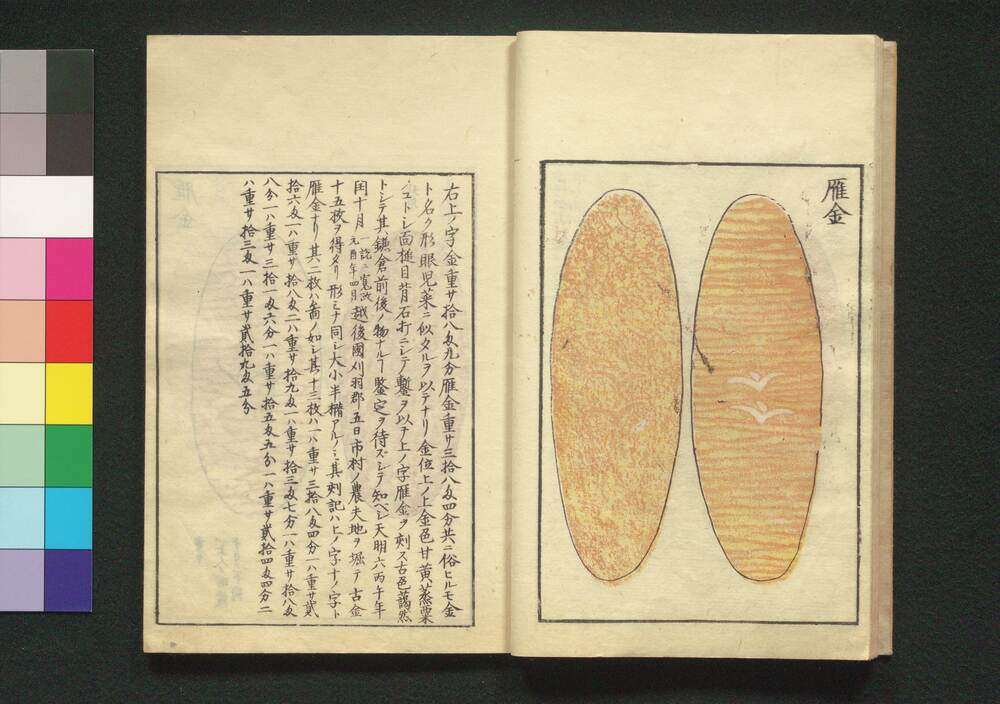 雁金
右上ノ字金重サ拾八匁九分雁金重サ三拾八匁四分共ニ俗ヒルモ金
ト名ク形眼児菜ニ似タルヲ以テナリ金位上ノ上金色甘黄蒸栗
ノコトシ面槌目背石打ニシテ鏨ヲ以テ上ノ字雁金ヲ刻ス古色藹然
トシテ其鎌倉前後ノ物ナルヿ鑒定ヲ待ズシテ知ヘシ天明六丙午年
閏十月
元酉年四月
越後國刈羽郡五日市村ノ農夫地ヲ堀テ古金
十五枚ヲ得タリ形ミナ同シ大小半楕アルノミ其刻記ハ上ノ字十ノ字ト
雁金ナリ其二枚ハ啚ノ如シ其十三枚ハ一ハ重サ三拾八匁四分一ハ重サ貳
拾六匁一ハ重サ拾八匁二ハ重サ拾九匁一ハ重サ拾三匁七分一ハ重サ拾八匁
八分一ハ重サ三拾一匁六分一ハ重サ拾五匁五分一ハ重サ貳拾四匁四分二
ハ重サ拾三匁一ハ重サ貳拾九匁五分